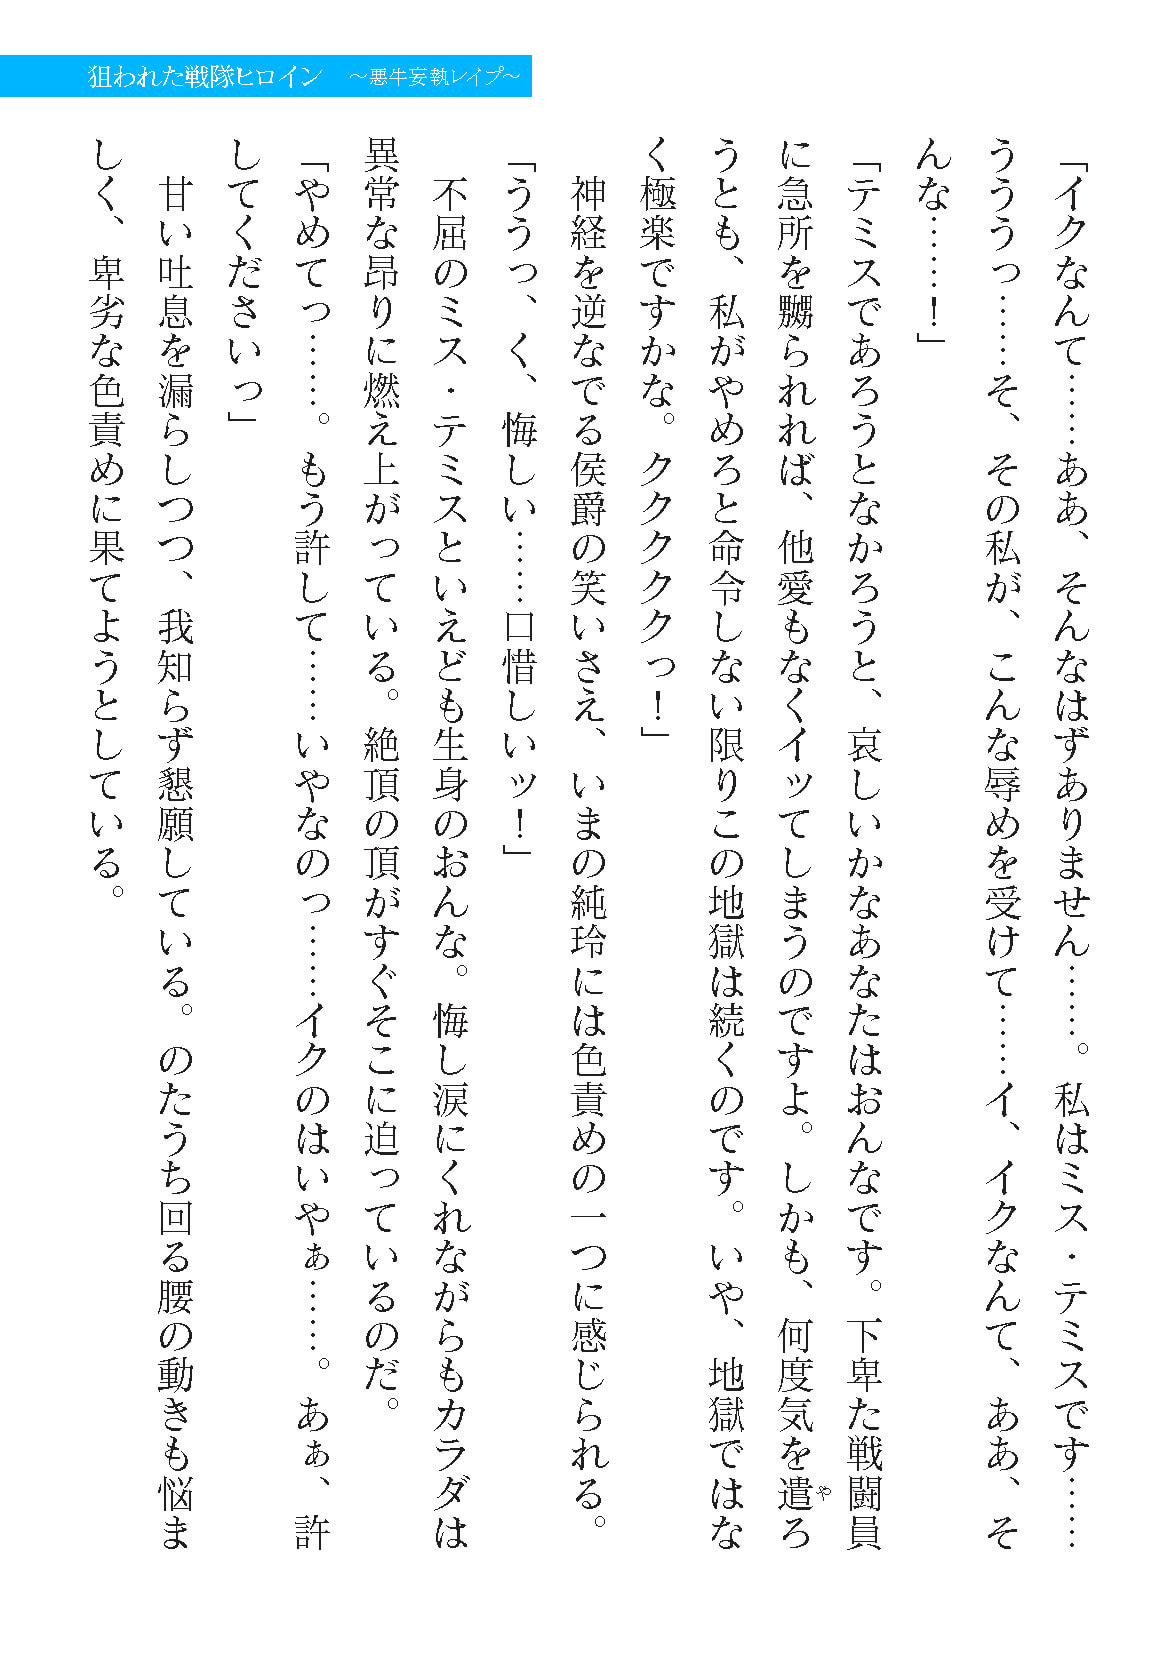 狙われた戦隊ヒロイン　～悪牛妄執レイプ～
「イクなんて……ああ、そんなはずありません……。私はミス・テミスです……
うううっ……そ、その私が、こんな辱めを受けて……イ、イクなんて、ああ、そ
んな……！」
「テミスであろうとなかろうと、哀しいかなあなたはおんなです。下卑た戦闘員
に急所を嬲られれば、他愛もなくイッてしまうのですよ。しかも、何度気を遣ろ
うとも、私がやめろと命令しない限りこの地獄は続くのです。いや、地獄ではな
く極楽ですかな。クククククっ！」
　神経を逆なでる侯爵の笑いさえ、いまの純玲には色責めの一つに感じられる。
「ううっ、く、悔しい……口惜しいッ！」
　不屈のミス・テミスといえども生身のおんな。悔し涙にくれながらもカラダは
異常な昂りに燃え上がっている。絶頂の頂がすぐそこに迫っているのだ。
「やめてっ……。もう許して……いやなのっ……イクのはいやぁ……。あぁ、許
してくださいっ」
　甘い吐息を漏らしつつ、我知らず懇願している。のたうち回る腰の動きも悩ま
しく、卑劣な色責めに果てようとしている。
や